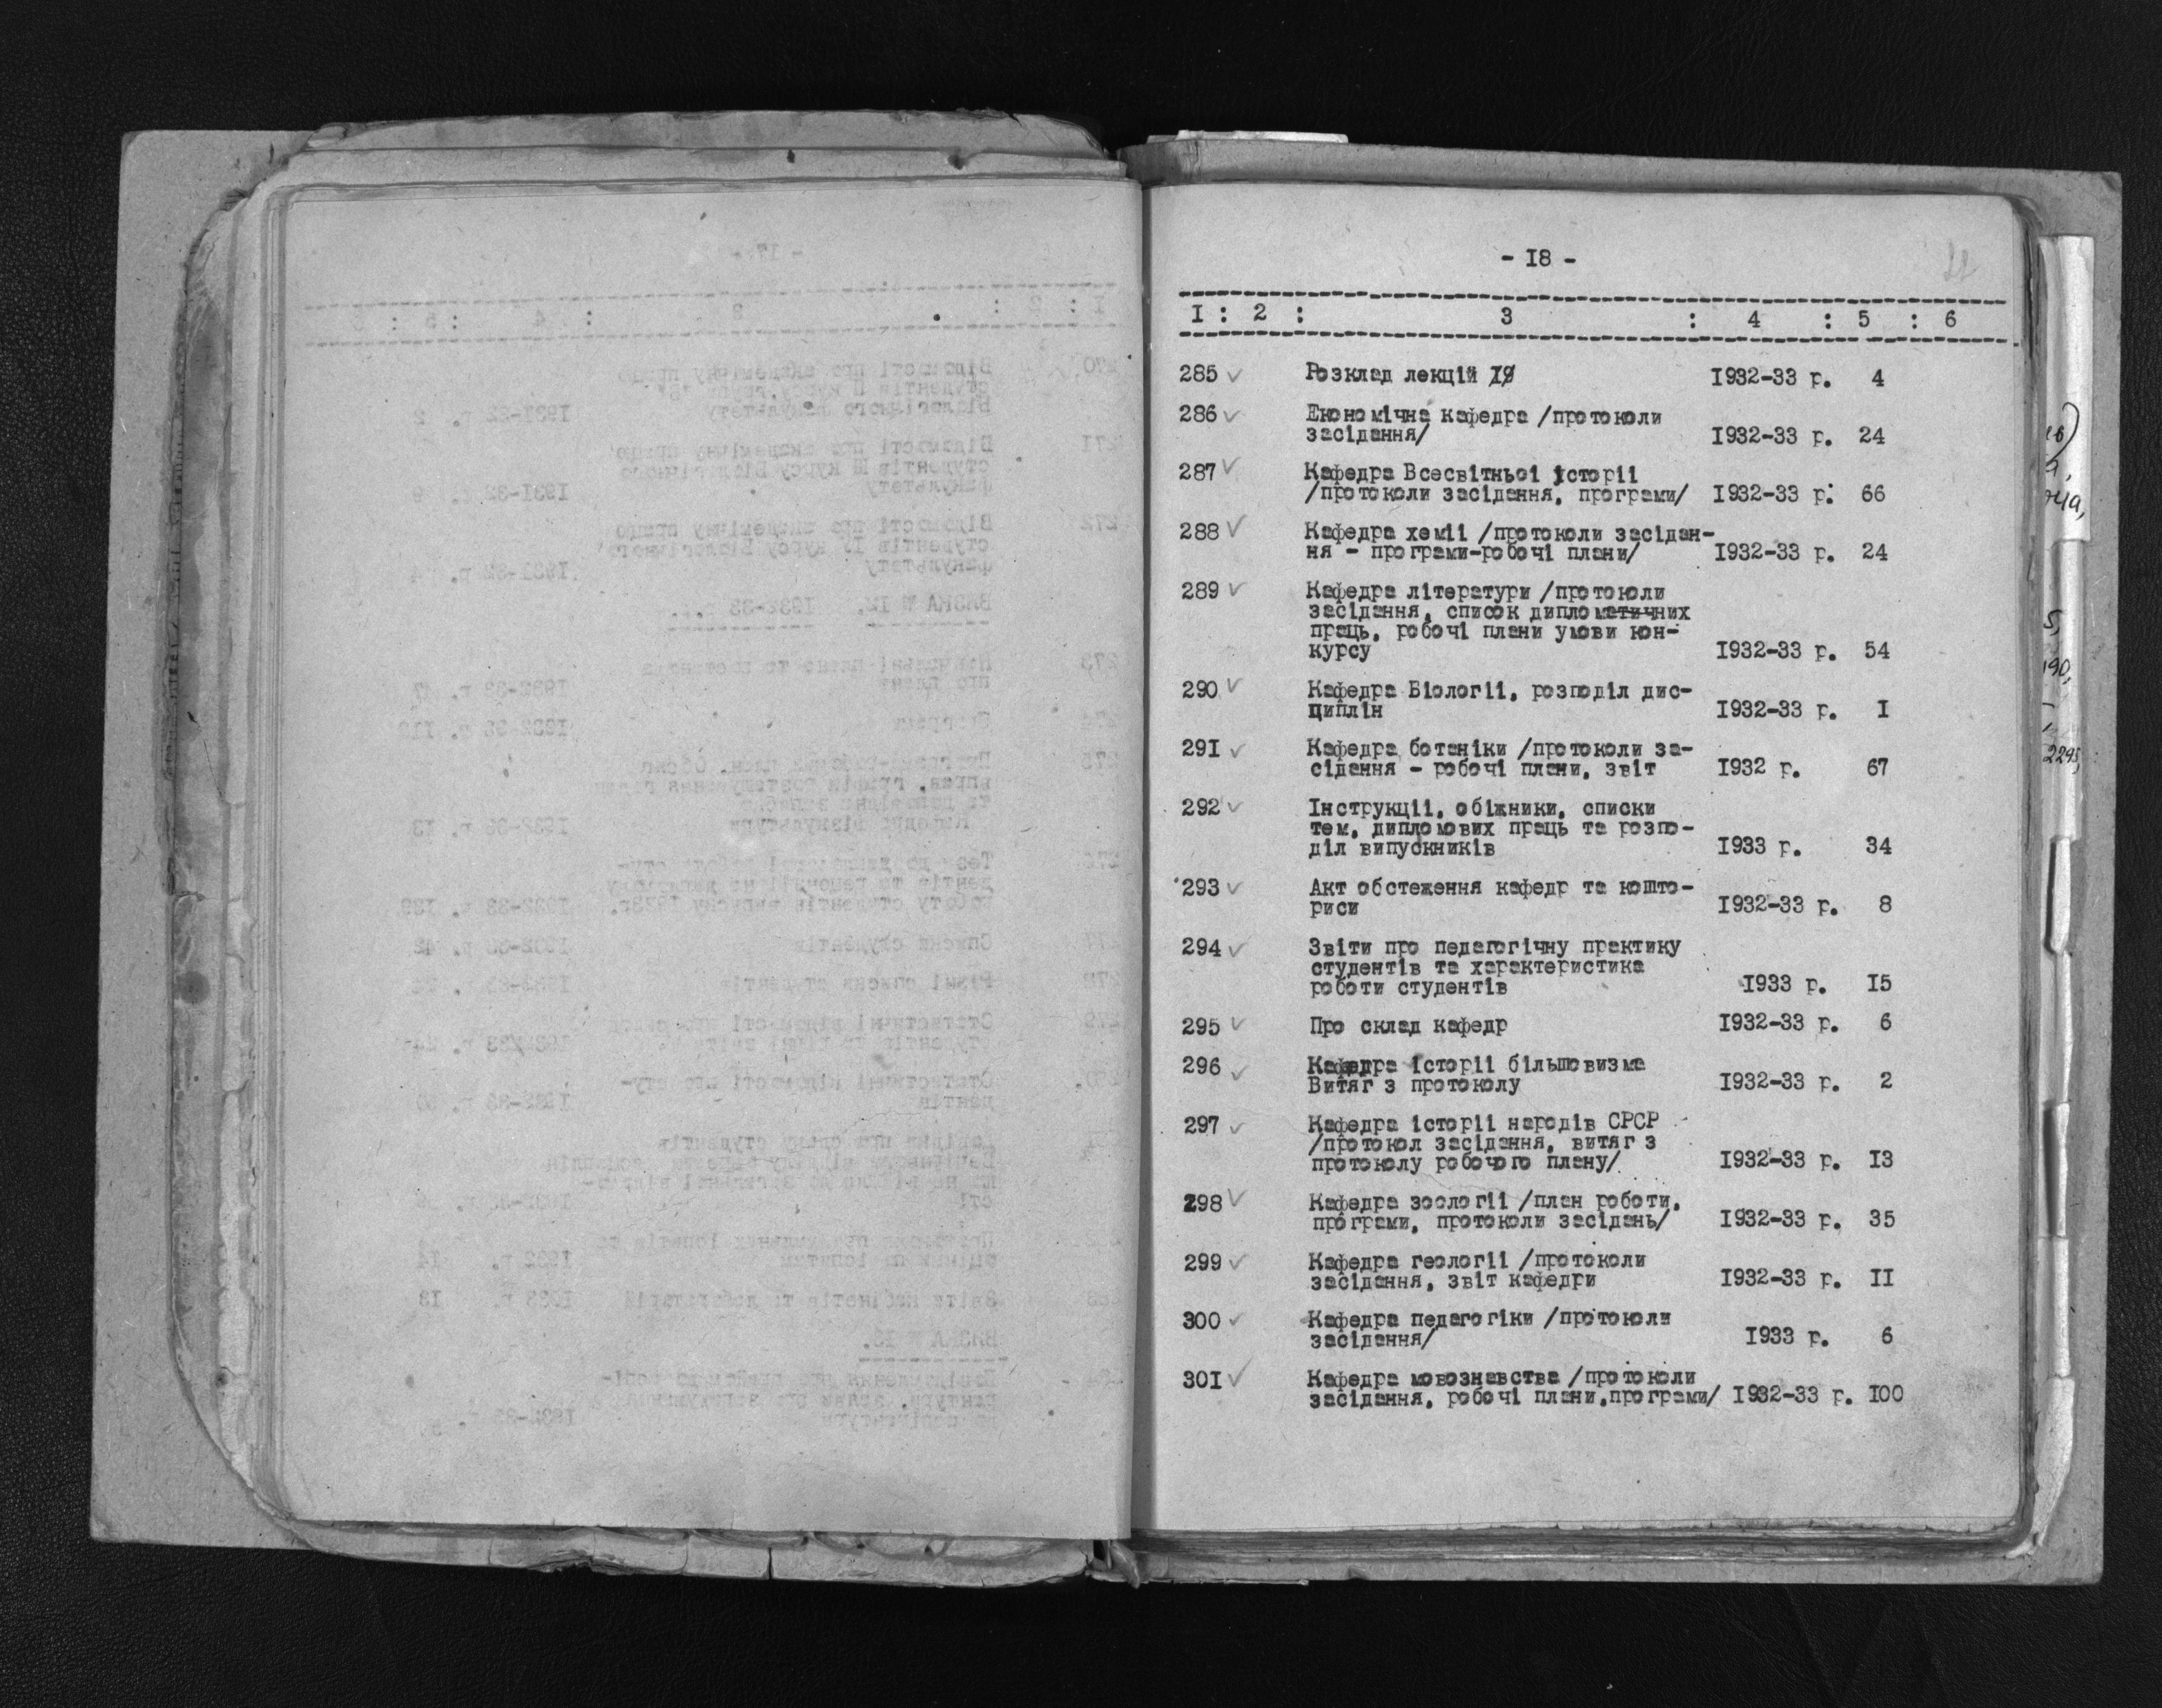 - I8 -
I : 2 : 3 : 4 : 5 : 6
285 Розклад лекцій 1932-33 р. 4
286 Економічна кафедра /протоколи
засідання/ I932-33 р. 24
287 Кафедра Всесвітньоі історіі
/протоколи засідання, програми/ I932-33 р. 66
288 Кафедра хеміі /протоколи засідан-
ня - програми-робочі плани/ I932-33 р. 24
289 Кафедра літератури /протоколи
засідання, список дипломатичних
праць, робочі плани умови кон-
курсу I932-33 р. 54
290 Кафедра Біологіі, розподіл дис-
циплін I932-33 р. I
29I Кафедра ботаніки /протоколи за-
сідання - робочі плани, звіт I932 р. 67
292 Інструкціі, обіжники, списки
тем, дипломових праць та розпо-
діл випускників I933 р. 34
293 Акт обстеження кафедр та кошто-
риси I932-33 р. 8
294 Звіти про педагогічну практику
студентів та характеристика
роботи студентів I933 р. I5
295 Про склад кафедр I932-33 р. 6
296 Кафедра історіі більшовизма
Витяг з протоколу I932-33 р. 2
297 Кафедра історіі народів СРСР
/протокол засідання, витяг з
протоколу робочого плану/ I932-33 р. I3
298 Кафедра зоологіі /план роботи,
програми, протоколи засідань/ I932-33 р. 35
299 Кафедра геологіі /протоколи
засідання, звіт кафедри I932-33 р. II
300 Кафедра педагогіки /протоколи
засідання/ I933 р. 6
30I Кафедра мовознавства /протоколи
засідання, робочі плани,програми/ I932-33 р. I00